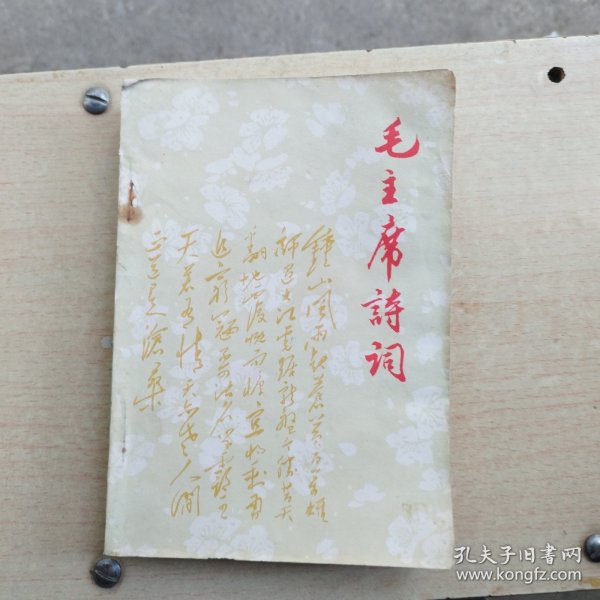 毛主席詩词
鍾山風雨起蒼黃百万雄
師过大江虎踞龍盤今勝昔天
翻地覆慨而慷宜将剩勇
追穷寇不可沽名学霸王
天若有情天亦老人間
正道是滄桑
孔夫子旧书网
www.kongfz.com